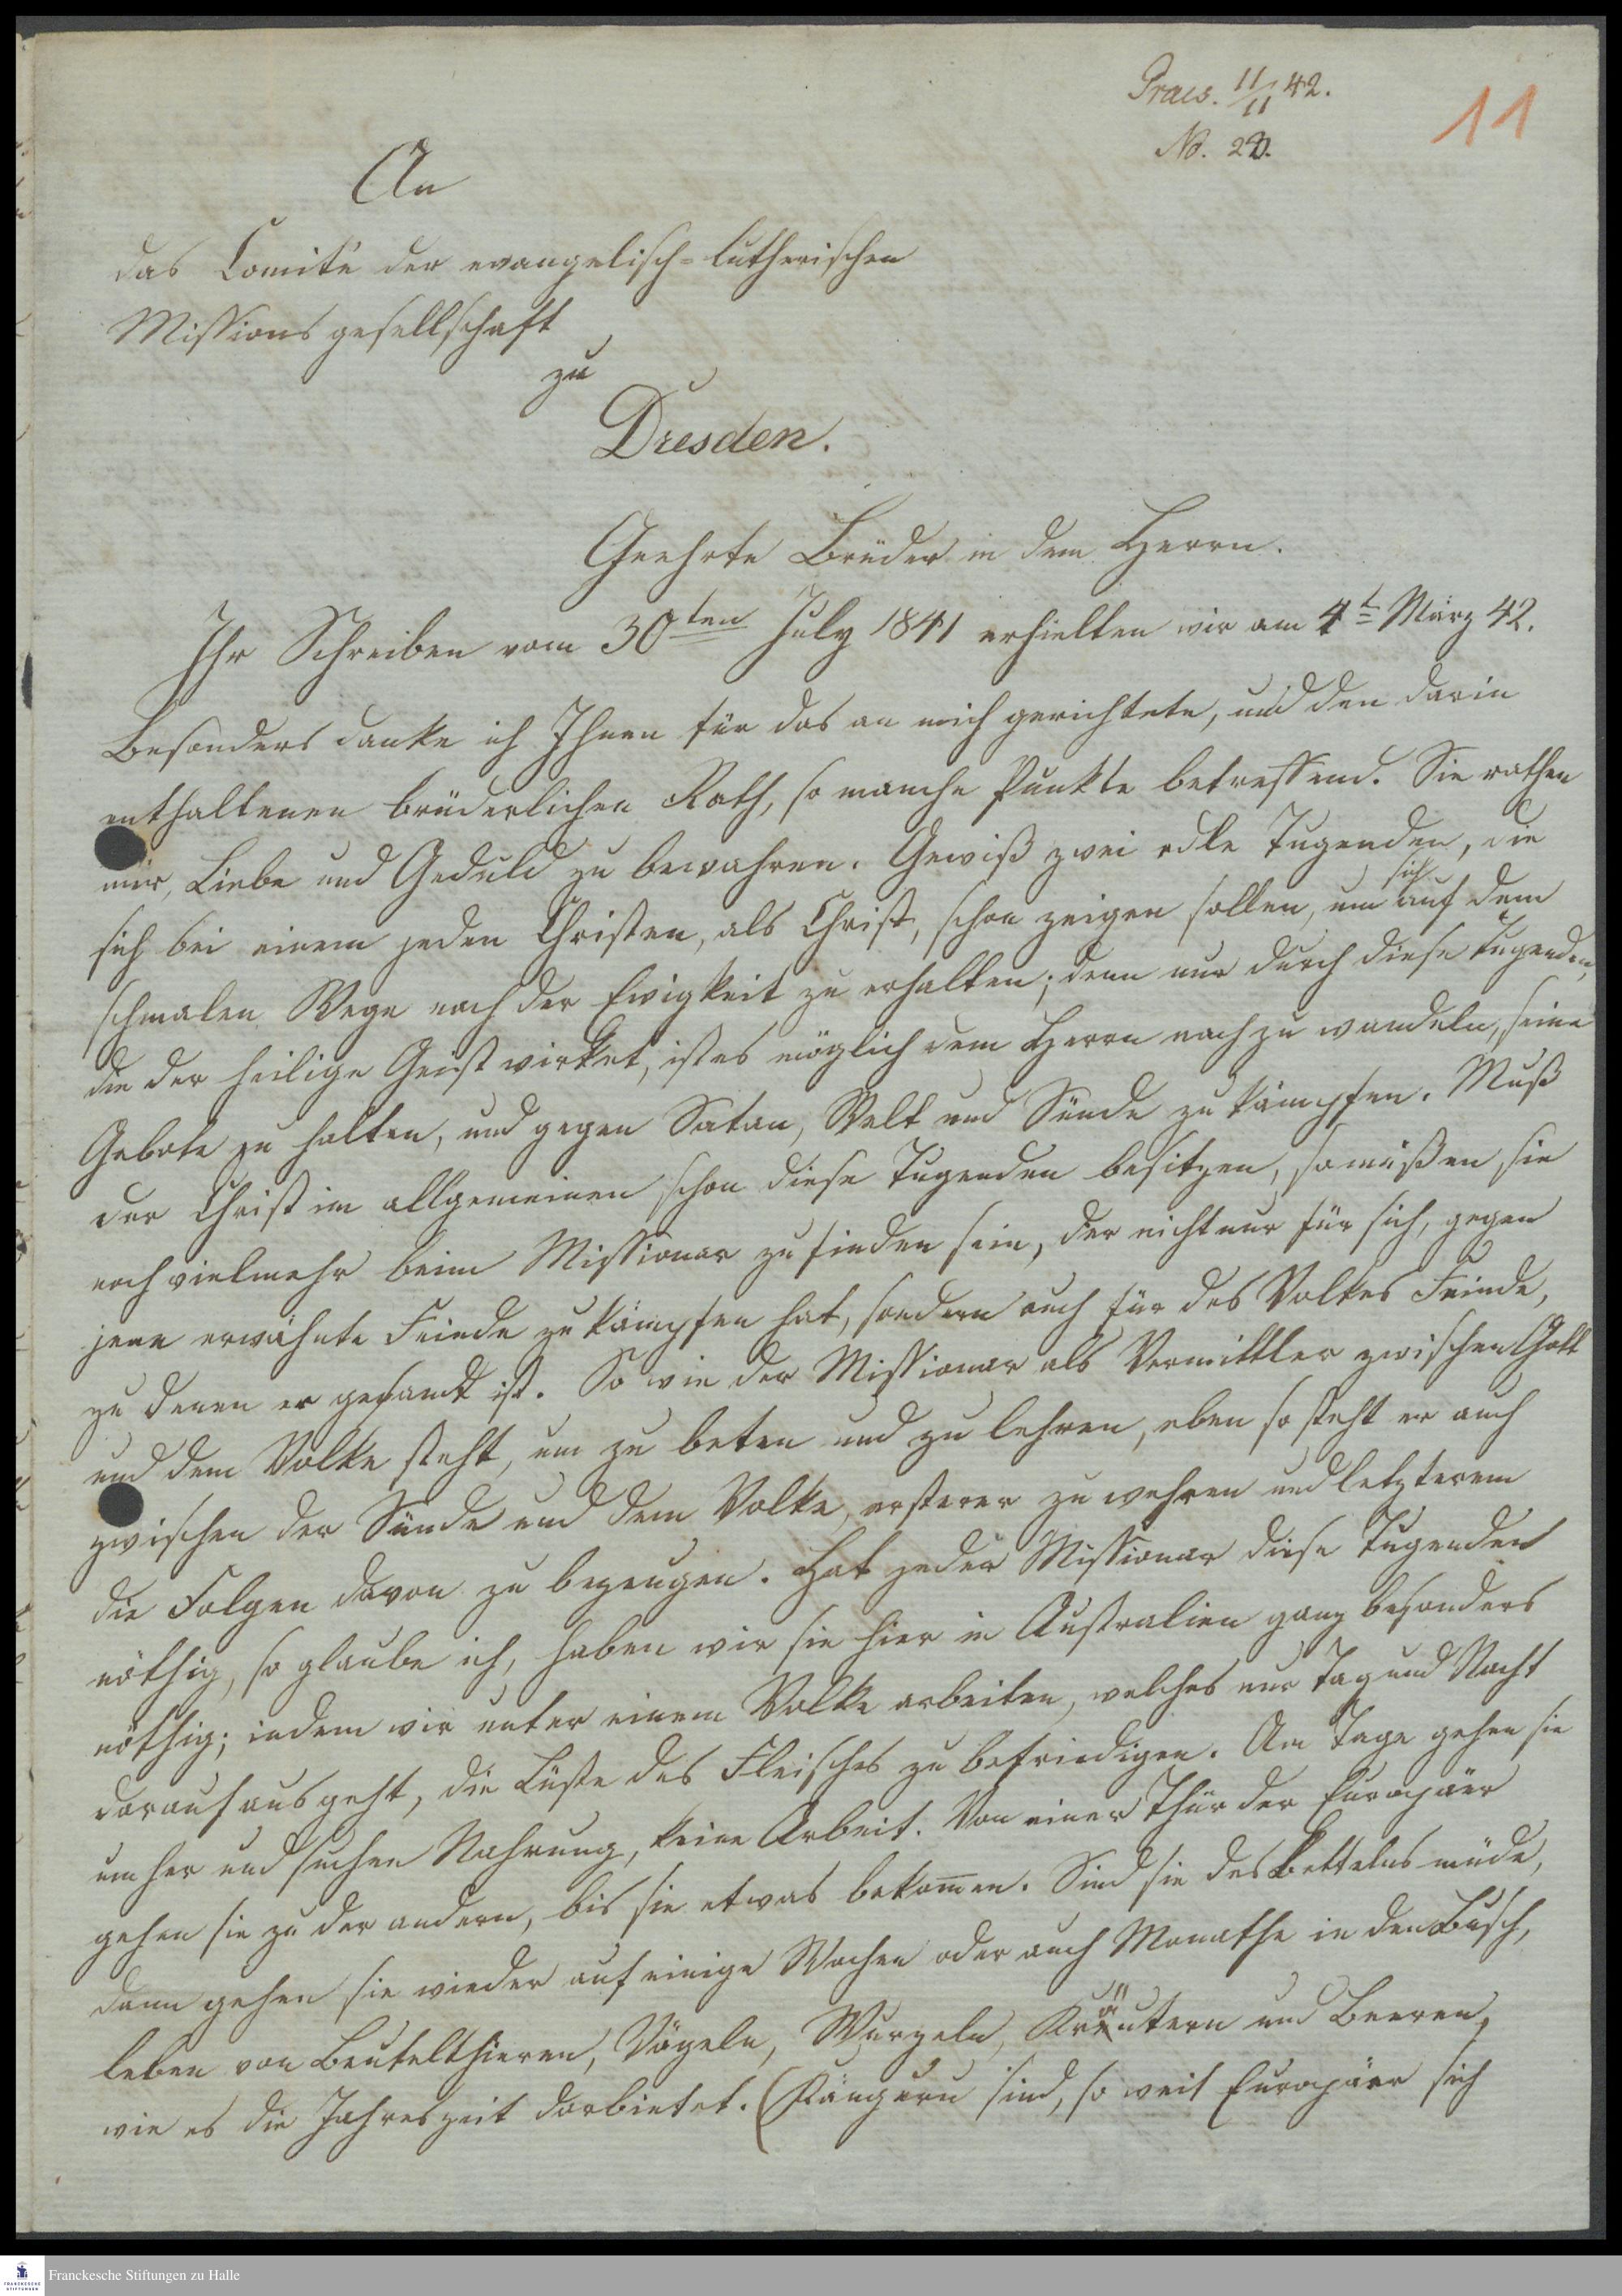 Praes. 11/11 42.
No. 20.
11
An
das Comité der evangelisch-lutherischen
Missionsgesellschaft
zu
Dresden.
Geehrte Brüder in dem Herrn.
Ihr Schreiben vom 30ten July 1841 erhielten wir am 4t März 42.
Besonders danke ich Ihnen für das an mich gerichtete, und den darin
enthaltenen brüderlichen Rath, so manche Punkte betreffend. Sie rathen
mir, Liebe und Geduld zu bewahren. Gewiß zwei edle Tugenden, die
sich bei einem jeden Christen, als Christ, schon zeigen sollen, um sich auf dem
schmalen Wege nach der Ewigkeit zu erhalten; denn nur durch diese Tugenden,
die der heilige Geist wirket, ist es möglich dem Herrn nach zu wandeln, seine
Gebote zu halten, und gegen Satan, Welt und Sünde zu kämpfen. Muß
der Christ im allgemeinen schon diese Tugenden besitzen, so müßen sie
noch vielmehr beim Missionar zu finden sein, der nicht nur für sich, gegen
jene erwähnte Feinde zu kämpfen hat, sondern auch für des Volkes Feinde,
zu denen er gesandt ist. So wie der Missionar als Vermittler zwischen Gott
und dem Volke steht, um zu beten und zu lehren, eben so steht er auch
zwischen der Sünde und dem Volke, ersterer zu wehren und letzterem
die Folgen davon zu bezeugen. Hat jeder Missionar diese Tugenden
nöthig, so glaube ich, haben wir sie hier in Australien ganz besonders
nöthig; indem wir unter einem Volke arbeiten, welches nur Tag und Nacht
darauf ausgeht, die Lüste des Fleisches zu befriedigen. Am Tage gehen sie
umher und suchen Nahrung, keine Arbeit. Von einer Thür der Europäer
gehen sie zu der andern, bis sie etwas bekom̄en. Sind sie des Bettelns müde,
dann gehen sie wieder auf einige Wochen oder auch Monathe in den Busch,
leben von Beutelthieren, Vögeln, Wurzeln, Kräutern und Beeren,
wie es die Jahreszeit darbietet. (Känguru sind, so weit Europäer sich
Franckesche Stiftungen zu Halle
FRANCKESCHE
STIFTUNGEN